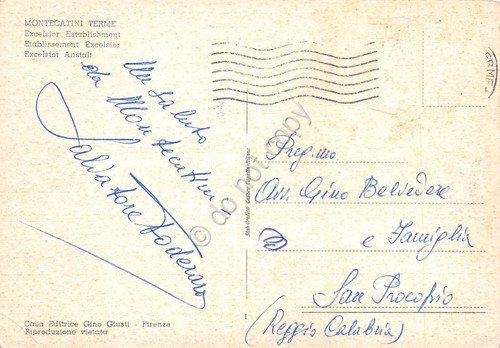 MONTECATINI TERME
Excelsior Establishment
Etablissement Excelsior
Excelsior Anstalt
Un saluto
da Montecatini
Salvatore Foderaro
Casa Editrice Gino Giusti - Firenze
Riproduzione vietata
do not copy
Preg.mo
Avv. Gino Belvedere
e Famiglia
San Procopio
(Reggio Calabria)